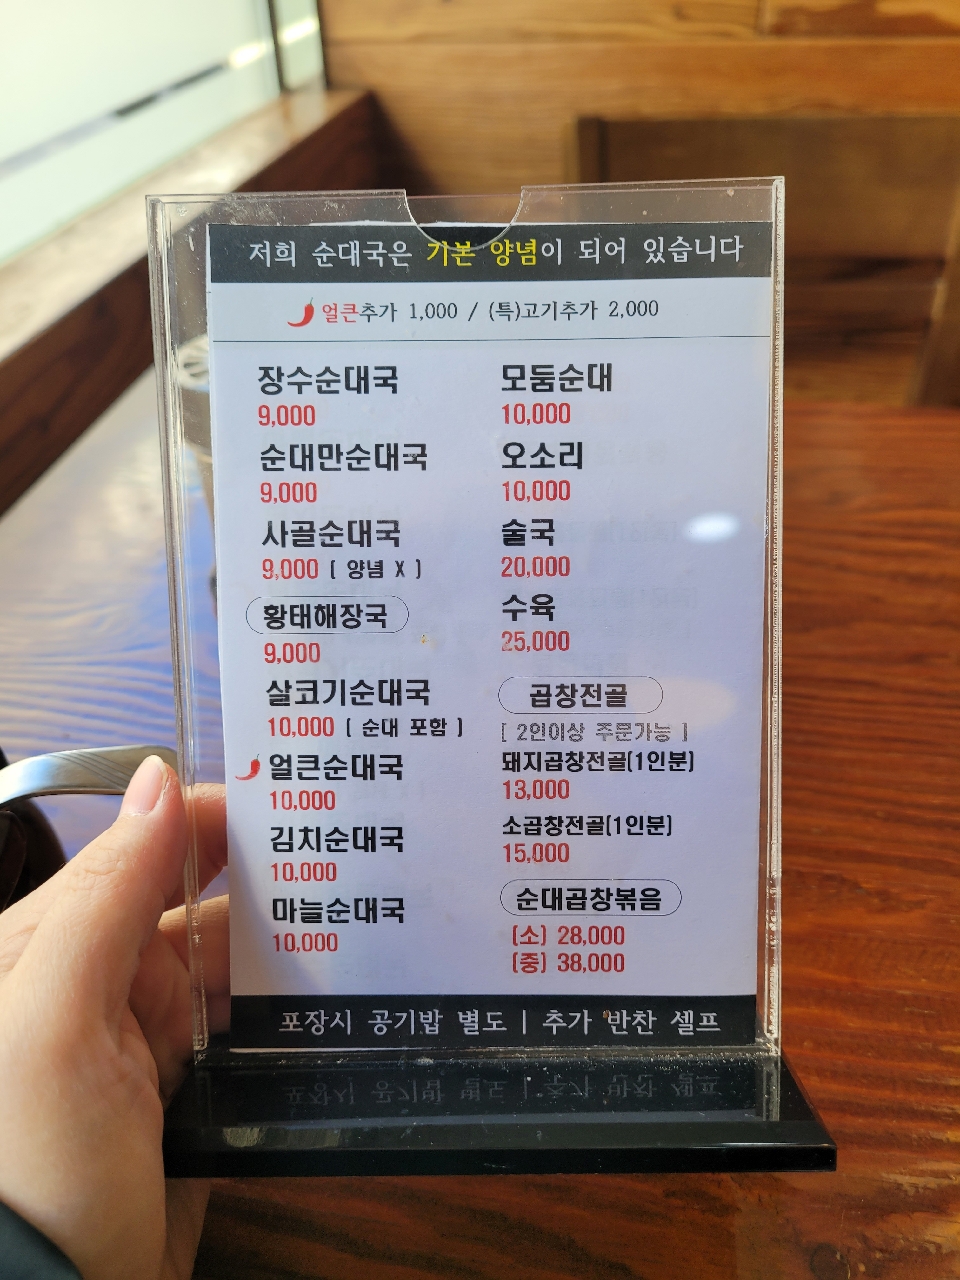 저희 순대국은 기본 양념이 되어 있습니다
얼큰추가 1,000 / (특)고기추가 2,000
장수순대국
9,000
순대만순대국
9,000
사골순대국
9,000 ( 양념 X )
황태해장국
9,000
살코기순대국
10,000 ( 순대 포함 )
얼큰순대국
10,000
김치순대국
10,000
마늘순대국
10,000
모둠순대
10,000
오소리
10,000
술국
20,000
수육
25,000
곱창전골
[ 2인이상 주문가능 ]
돼지곱창전골(1인분)
13,000
소곱창전골(1인분)
15,000
순대곱창볶음
(소) 28,000
(중) 38,000
포장시 공기밥 별도 | 추가 반찬 셀프